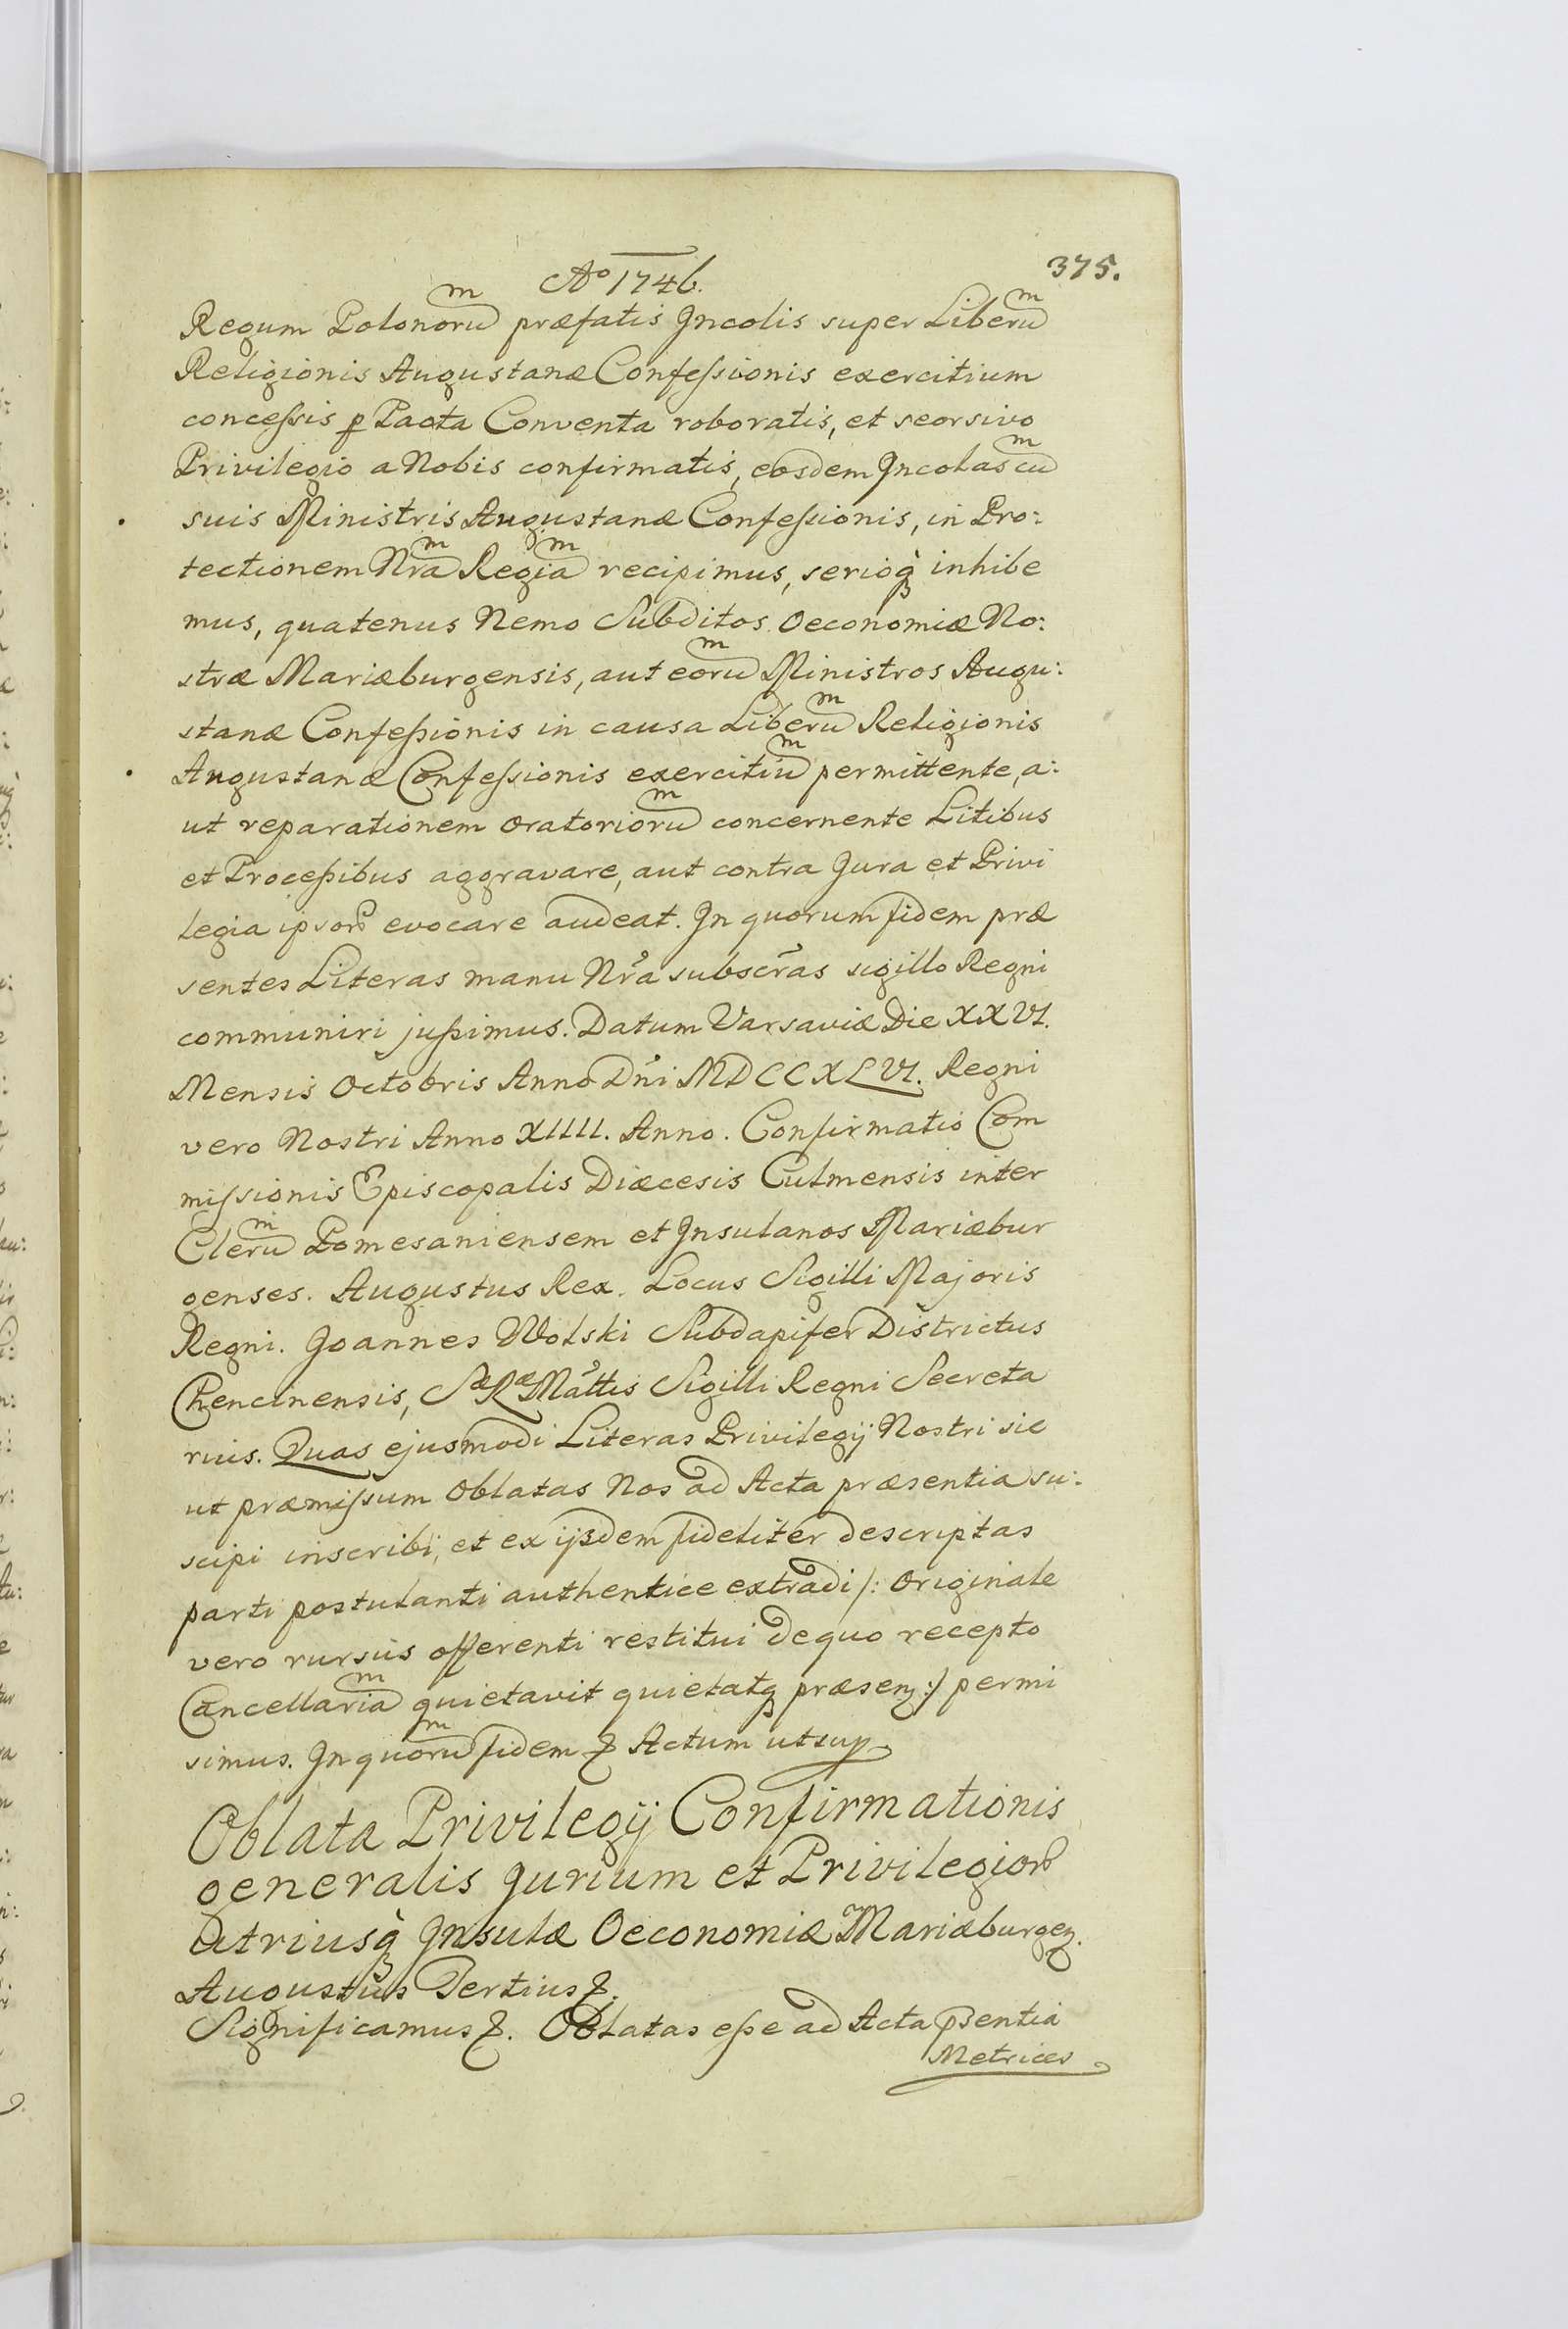 Aº 1746.
375.
Regum Polonoruᵐ præfatis Incolis super Liberuᵐ
Religionis Augustanæ Confessionis exercitium
concessis ꝑ Pacta Conventa roboratis, et seorsivo
Privilegio a Nobis confirmatis, eosdem Incolas cuᵐ
suis Ministris Augustanæ Confessionis, in Pro:
tectionem Nraᵐ Regiaᵐ recipimus, serioq̀ inhibe
mus, quatenus Nemo Subditos Oeconomiæ No:
stræ Mariæburgensis, aut eoruᵐ Ministros Augu:
stanæ Confessionis in causa Liberuᵐ Religionis
Augustanæ Confessionis exercitiuᵐ permittente, a:
ut reparationem Oratorioruᵐ concernente Litibus
et Processibus aggravare, aut contra Jura et Privi
legia ipsoꝝ evocare audeat. In quorum fidem præ
sentes Literas manu Nr̃a subscr̃as sigillo Regni
communiri jussimus. Datum Varsaviæ Die XXVI.
Mensis Octobris Anno Dn̄i MDCCXLVI. Regni
vero Nostri Anno XIIII. Anno. Confirmatio Com
missionis Episcopalis Diæcesis Culmensis inter
Cleruᵐ Pomesaniensem et Insulanos Mariæbur
genses. Augustus Rex. Locus Sigilli Majoris
Regni. Joannes Wolski Subdapifer Districtus
Chencinensis, Sæ Ræ Mattis Sigilli Regni Secreta
rius. Quas ejusmodi Literas Privilegij Nostri sic
ut præmissum Oblatas Nos ad Acta præsentia su:
scipi inscribi, et ex ijsdem fideliter descriptas
parti postulanti authentice extradi /: Originale
vero rursus offerenti restitui de quo recepto
Cancellariaᵐ quietavit quietatq præsenz :/ permi
simus. In quoruᵐ fidem ꝛ Actum ut sup
Oblata Privilegij Confirmationis
generalis Jurium et Privilegioꝝ
Utriusq̀ Insulæ Oeconomiæ Mariæburgen.
Augustus Tertius ꝛ.
Significamus ꝛ. Oblatas esse ad Acta p̄sentia
Metrices